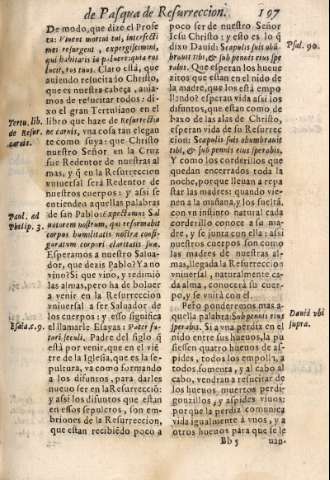 de Pasqua de Resurreccion. 197
De modo, que dize el Profe
ta: Viuent mortui tui, interfecti
mei resurgent, expergiscimini,
qui habitatis in puluere: quia ros
lucis, ros tuus. Claro està, que
auiendo resucitado Christo,
que es nuestra cabeça, auia-
mos de resucitar todos: di-
xo el gran Tertuliano en el
Tertu. lib.
de Resur.
carnis.
libro que haze de Resurrectio
ne carnis, vna cosa tan elegan
te como suya: que Christo
nuestro Señor en la Cruz
fue Redentor de nuestras al
mas, y q̃ en la Resurreccion
vniuersal sera Redentor de
nuestros cuerpos: y assi se
entienden aquellas palabras
Paul. ad
Philip. 3.
de san Pablo: Expectamus Sal
uatorem nostrum, qui reformabit
corpus humilitatis nostræ confi-
guratum corpori claritatis suæ.
Esperamos a nuestro Salua-
dor, que deais Pablo? Ya no
vino? Si que vino, y redimiò
las almas, pero ha de boluer
a venir en la Resurreccion
vniuersal a ser Saluador de
los cuerpos: y esso significa
Esaia c. 9.
el llamarle Esayas: Pater fu-
turi seculi. Padre del siglo q̃
està por venir, que en el viẽ
tre de la Iglesia, que es la se-
pultura, va como formando
a los difuntos, para darles
nueuo ser en la Resurrecciõ:
y assi los difuntos que estan
en essos sepulcros, son em-
briones de la Resurreccion,
que estan recibiẽdo poco a
poco ser de nuestro Señor
Iesu Christo: y esto es lo q̃
Psal. 90.
dixo Dauid: Scapulis suis obũ-
brauit tibi, & sub pennis eius spe-
rabis. Que esperan los hueue
zitos que estan en el nido de
la madre, que los està empo
llando? esperan vida assi los
difuntos, que estan como de
baxo de las alas de Christo,
esperan vida de su Resurrec-
cion: Scapulis suis obumbrauit
tibi, & sub pennis eius sperabis.
Y como los corderillos que
quedan encerrados toda la
noche, porque lleuan a repa
star las madres: quando vie-
nen a la mañana, y los suelta,
con vn instinto natural cada
corderillo conoce a su ma-
dre, y se junta con ella: assi
nuestros cuerpos son como
las madres de nuestras al
mas, llegada la Resurreccion
vniuersal, naturalmente ca-
da alma, conocerà su cuer-
po, y se vnirà con el.
Pero pondereMos mas a-
Dauid vbi
supra.
quella palabra: Sub pennis eius
sperabis. Si a vna perdiz en el
nido entre sus hueuos, la pu
siessen quatro hueuos de as-
pides, a todos los empolla, a
todos fomenta, y al cabo al
cabo, vendran a resucitar de
los hueuos muertos perdi-
gonzillos, y aspides viuos:
porque la perdiz comunica
vida igualmente a vnos, y a
otros hueuos para que se le
Bb 5 uan-